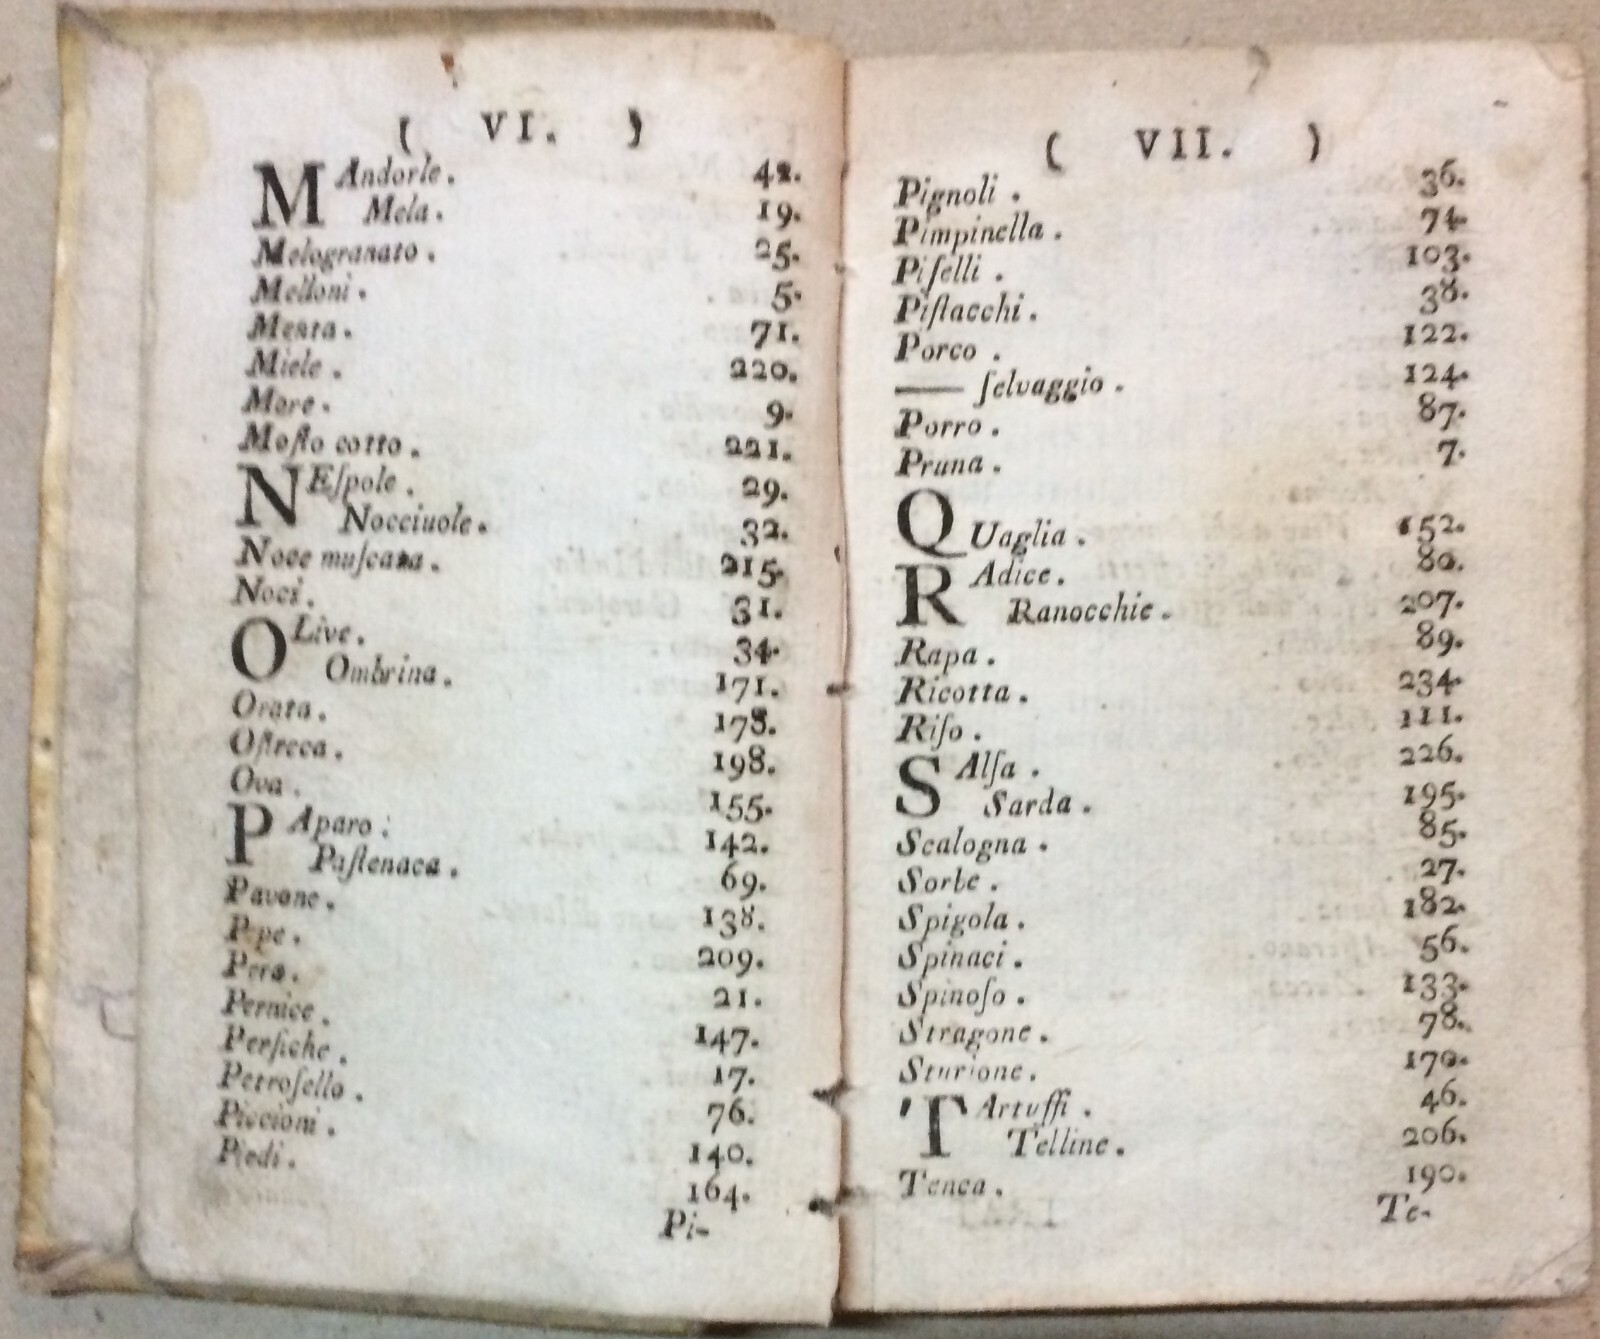 ( VI. )
MAndorle. 42.
Mela. 19.
Melogranato. 25.
Melloni. 5.
Menta. 71.
Miele. 220.
More. 9.
Moſto cotto. 221.
NEſpole. 29.
Nocciuole. 32.
Noce muſcata. 215.
Noci. 31.
OLive. 34.
Ombrina. 171.
Orata. 178.
Oſtreca. 198.
Ova. 155.
PAparo. 142.
Paſtenaca. 69.
Pavone. 138.
Pepe. 209.
Pera. 21.
Pernice. 147.
Perſiche. 17.
Petroſello. 76.
Piccioni. 140.
Piedi. 164.
Pi-
( VII. )
Pignoli. 36.
Pimpinella. 74.
Piſelli. 103.
Piſtacchi. 38.
Porco. 122.
—— ſelvaggio. 124.
Porro. 87.
Pruna. 7.
QUaglia. 152.
RAdice. 80.
Ranocchie. 207.
Rapa. 89.
Ricotta. 234.
Riſo. 111.
SAlſa. 226.
Sarda. 195.
Scalogna. 85.
Sorbe. 27.
Spigola. 182.
Spinaci. 56.
Spinoſo. 133.
Stragone. 78.
Sturione. 170.
TArtuffi. 46.
Telline. 206.
Tenca. 190.
Te-